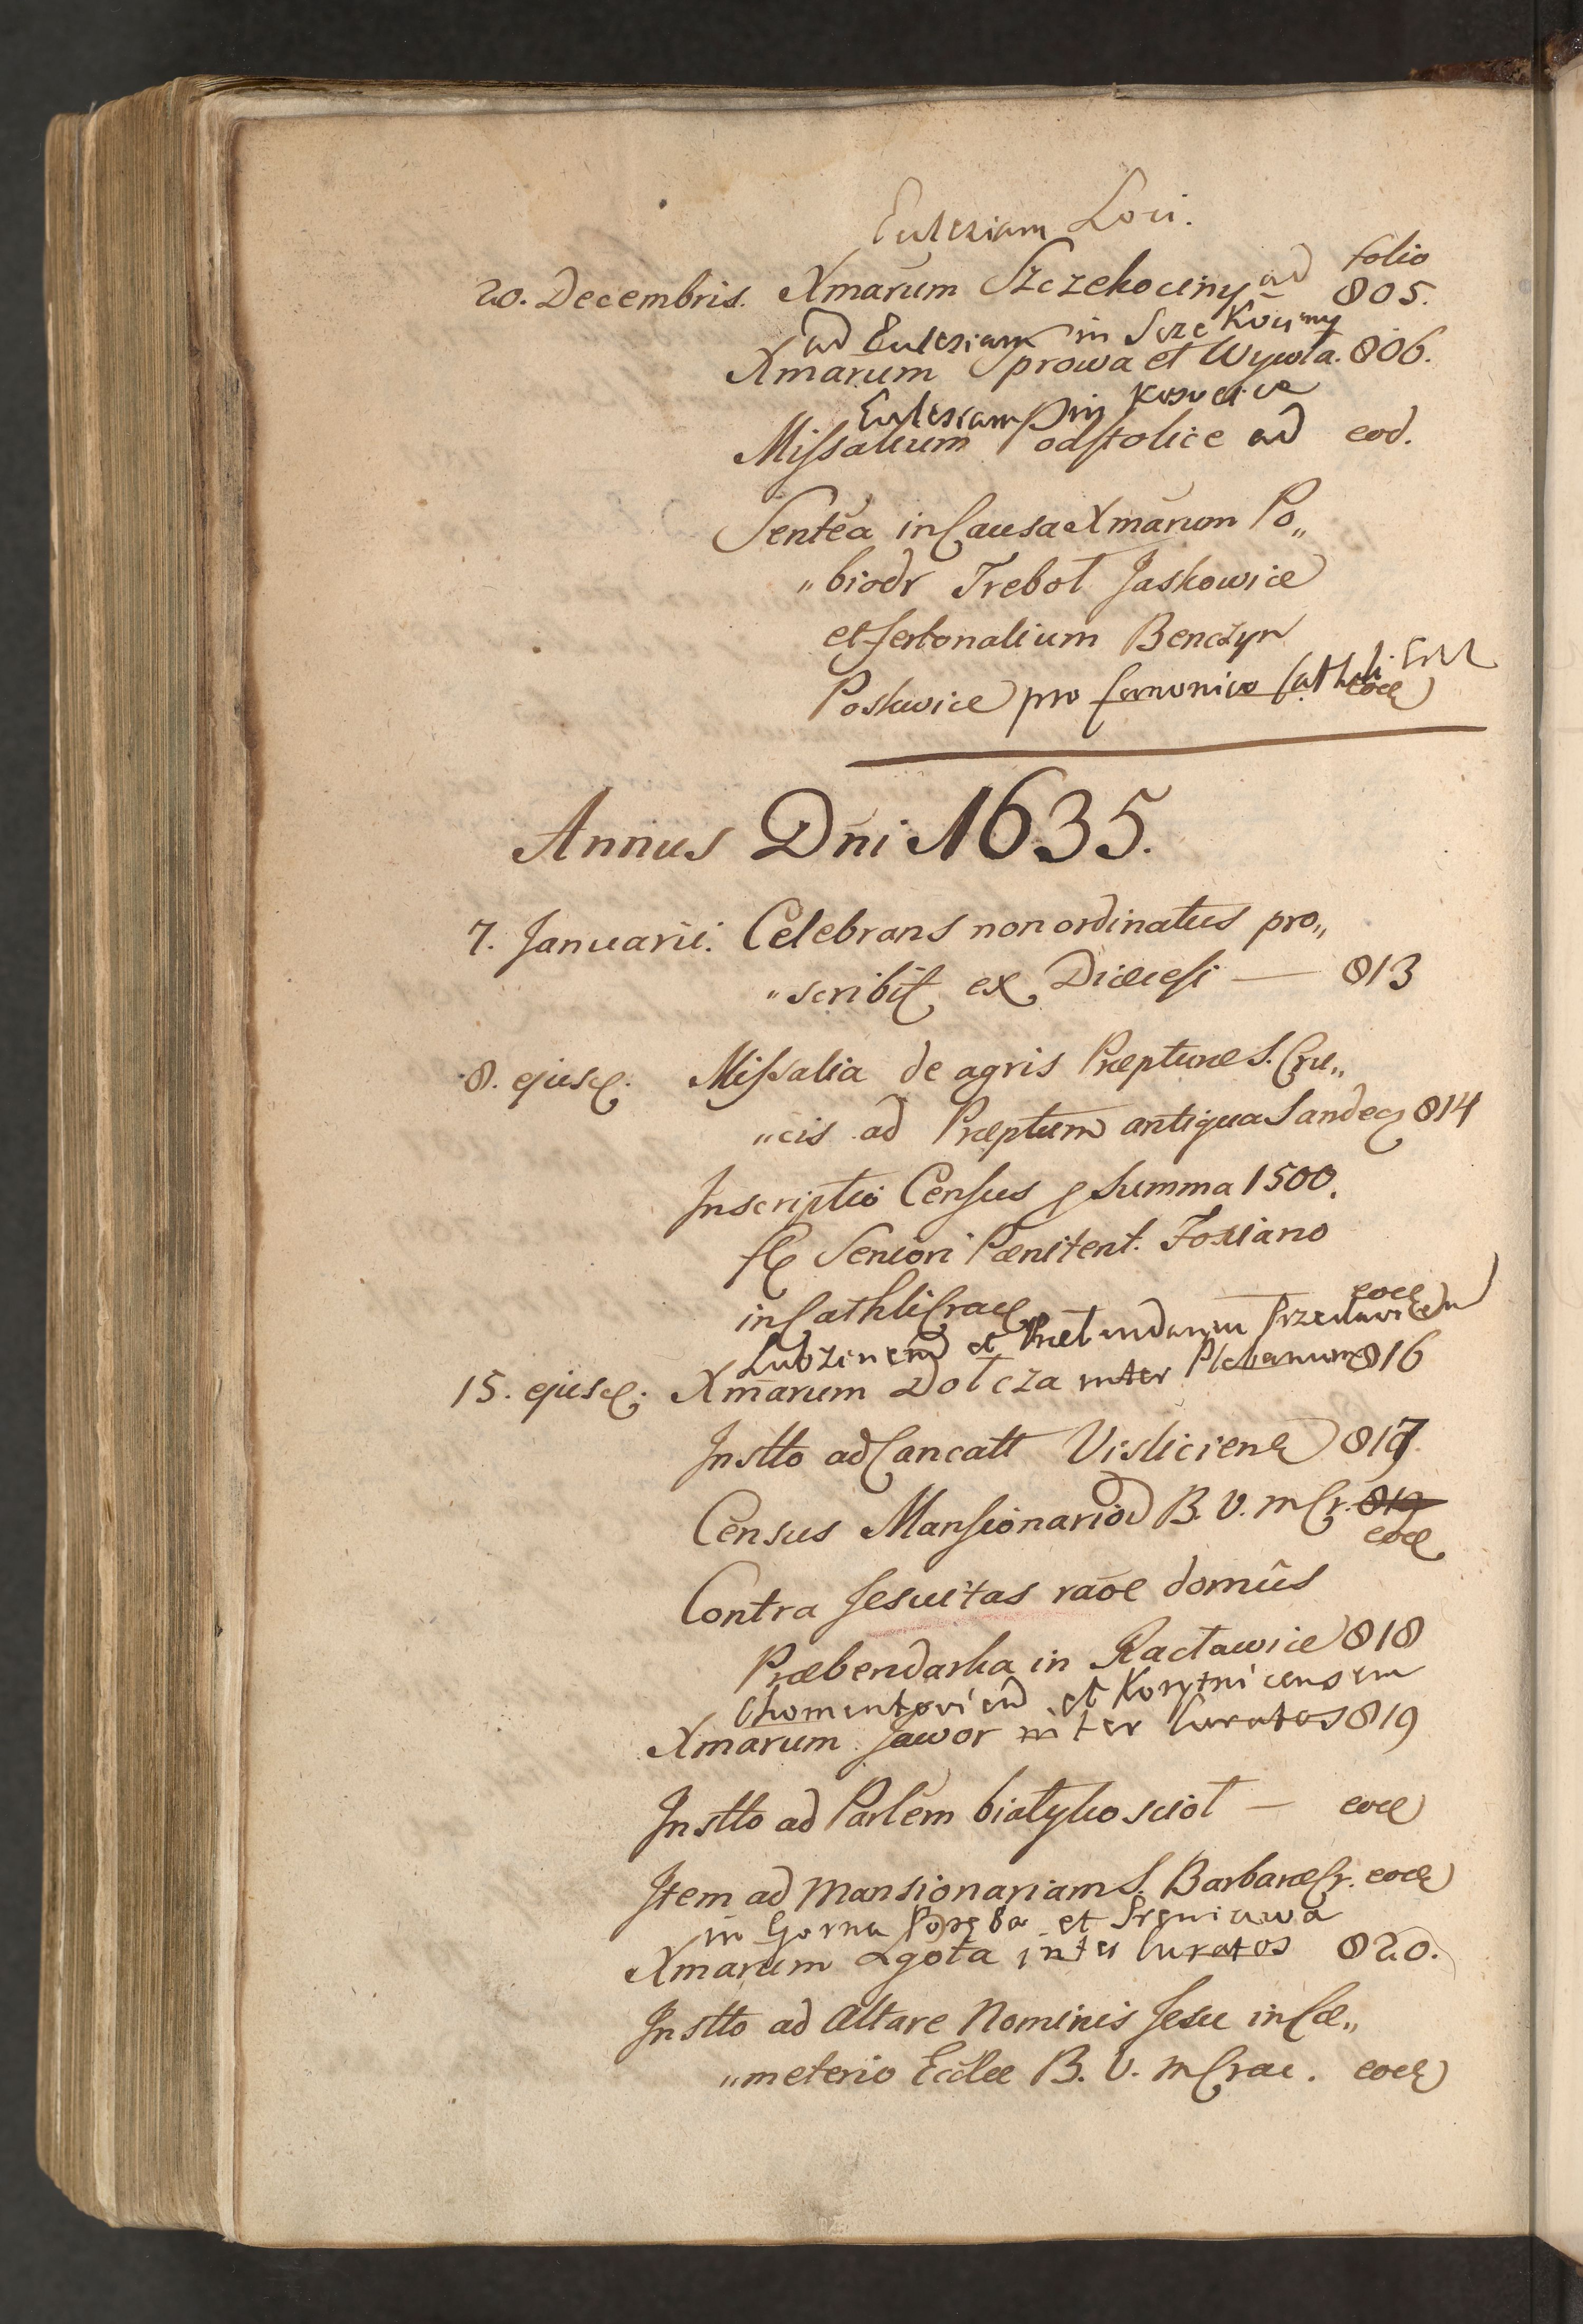 Ecclesiam Loci.
folio
20. Decembris. Xmarum Szczekociny ad 805.
ad Ecclesiam in Szczekociny
Xmarum Sprowa et Wywła. 806.
Ecclesiam in
Missalium Podstolice ad eod.
Sentēa in Causa Xmārum Po„
„biodr Trebol Jaskowice
et fertonalium Benczyn
Poskwice pro Canonico Cathli
eod
Annus Dni 1635.
7. Januarii. Celebrans non ordinatus pro„
„scribit ex Diœcesi — 813
8. ejusd. Missalia de agris Præpturæ S. Cru„
„cis ad Præptum antiqua Sandec 814
Inscriptio Census p summa 1500.
fl Seniori Pœnitent. Foxiano
in Cathli Crac eod
Lubzinen et Præbendarium
15. ejusd. Xmarum Dołcza inter Plebanum 816
Instto ad Cancatt Vislicien 817.
Census Mansionariod B. V. in Cr. 819
eod
Contra Jesuitas raōe domûs
Præbendarska in Racławice 818
Chomentovien et Korytnicensem
Xmarum Jawor inter Curatos 819
Instto ad Parlem białykosciol — eod
Item ad Mansionariam S. Barbaræ Cr. eod
in Gorna Poręba et Sreniawa
Xmarum Lgota inter Curatos 820.
Instto ad Altare Nominis Jesu in Cæ„
„meterio Ecclæ B. V. in Crac. eod